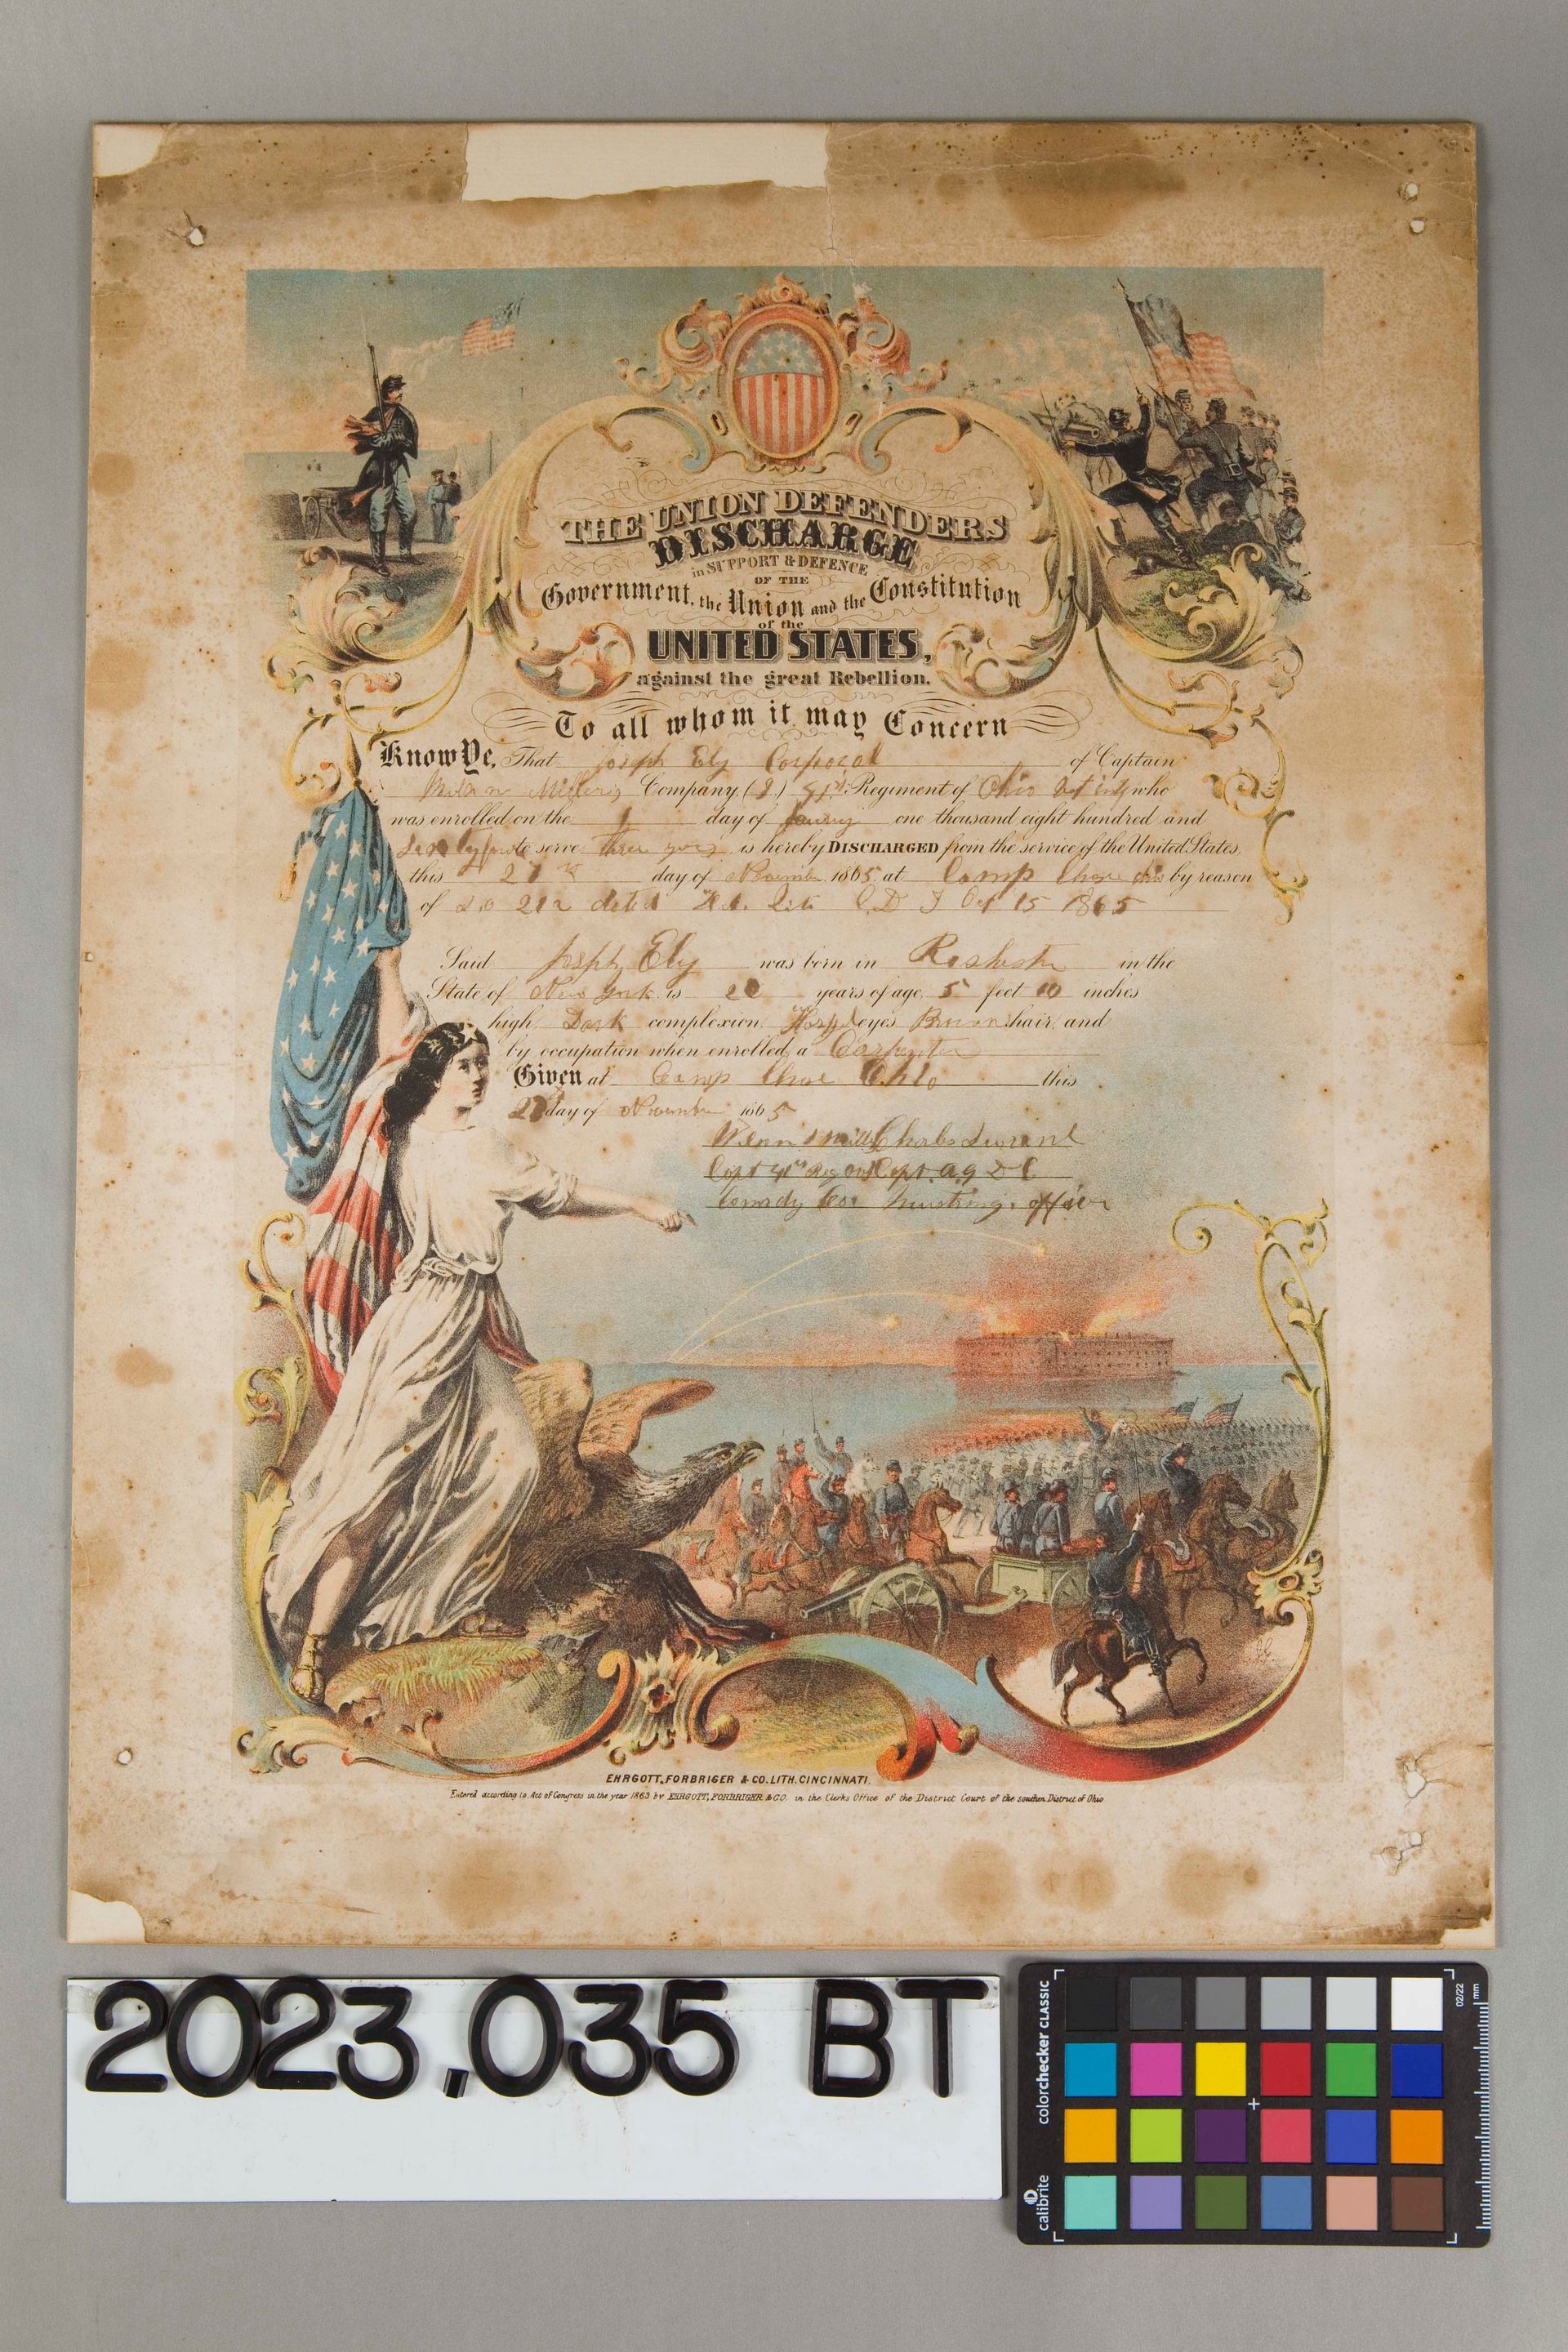 THE UNION DEFENDERS
DISCHARGE
in SUPPORT & DEFENCE
OF THE
Government, the Union and the Constitution
of the
UNITED STATES,
against the great Rebellion.
To all whom it may Concern
Know Ye, That Joseph Ely Corporal of Captain
Company, ( ) Regiment of Ohio who
was enrolled on the 1 day of one thousand eight hundred and
to serve three is hereby DISCHARGED from the service of the United States,
this day of November 1865 at Camp Chase by reason
of dated Oct 15 1865
Said Joseph Ely was born in in the
State of New York is years of age, 5 feet 10 inches
high, Dark complexion, eyes Brown hair, and
by occupation when enrolled, a Carpenter
Given at Camp Chase Ohio this
day of November 1865
Capt Reg Capt.
Comdg Co. officer
EHRGOTT, FORBRIGER & CO. LITH. CINCINNATI.
Entered according to Act of Congress in the year 1863 by EHRGOTT, FORBRIGER & CO. in the Clerks Office of the District Court of the southern District of Ohio
2023.035 BT
colorchecker CLASSIC
calibrite
02/22
mm